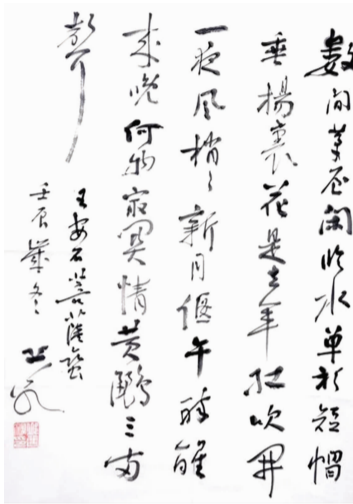 數間茅屋閑临水單衫短帽
垂楊裏花是去年红吹開
一夜风梢々新月偃午醉醒
来晚何物冣関情黄鸝三两
聲
王安石菩薩蠻
壬辰歲冬